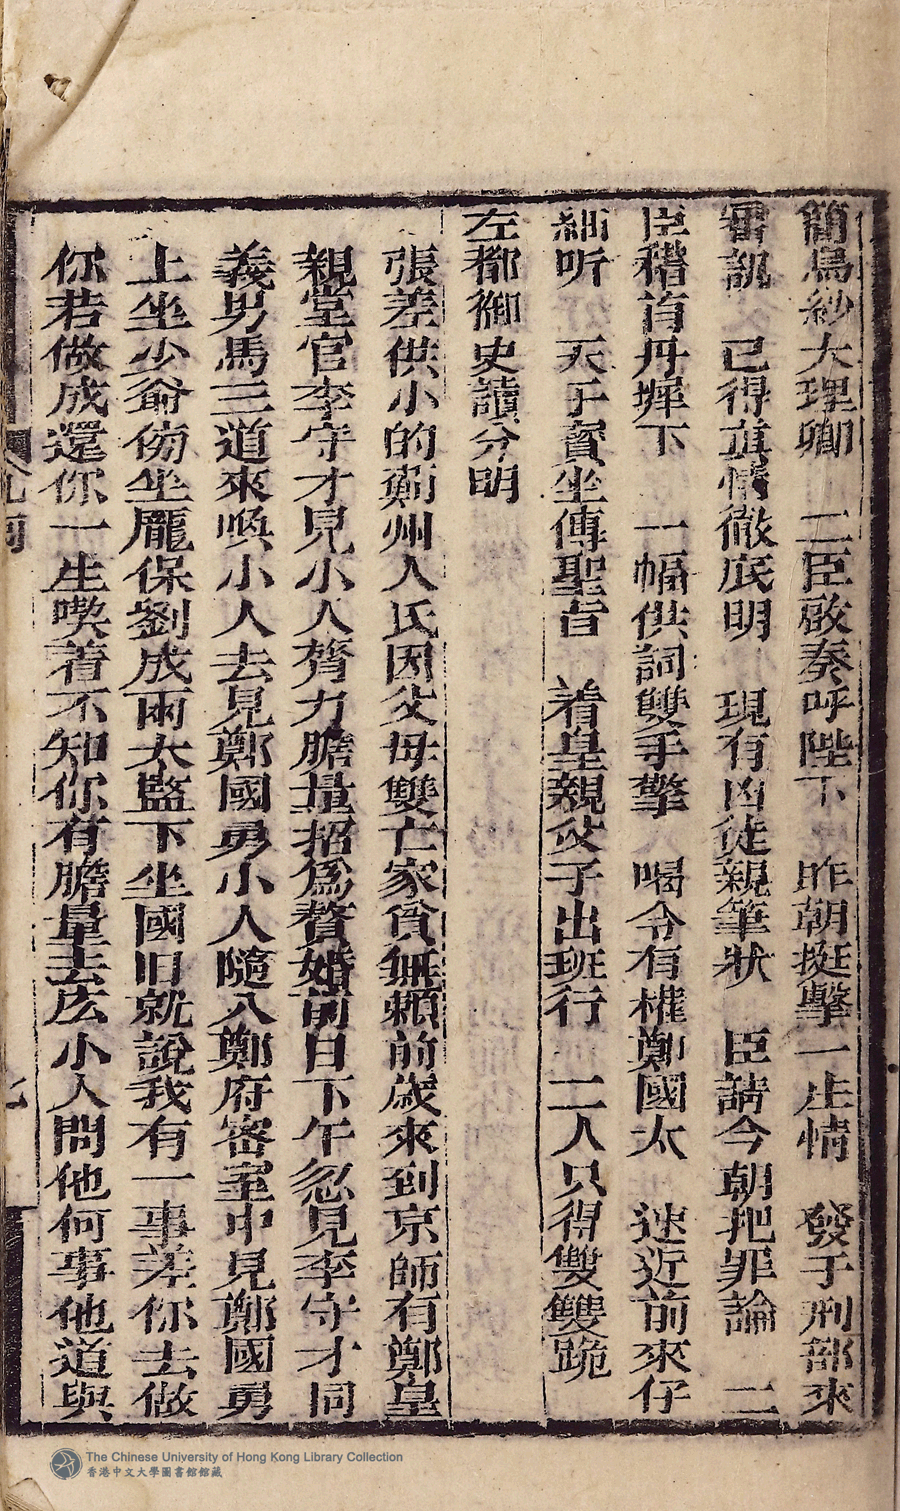 簡烏紗大理卿　二臣啟奏呼陛下　昨朝挺擊一庄情　發于刑部來
審訊　已得真情徹底明　現有凶徒親筆狀　臣請今朝把罪論　二
臣稽首丹墀下　一幅供詞雙手擎　喝令有權鄭國太　速近前來仔
細听　天子寶坐傳聖旨　着皇親父子出班行　二人只得雙雙跪
左都御史讀分明
張差供小的薊州人氏因父母雙亡家貧無賴前歲來到京師有鄭皇
親堂官李守才見小人膂力膽量招為贅婚前日下午忽見李守才同
義男馬三道來喚小人去見鄭國勇小人隨入鄭府密室中見鄭國勇
上坐少爺傍坐龐保劉成兩太監下坐國旧就說我有一事差你去做
你若做成還你一生喫着不知你有膽量去庅小人問他何事他道與
The Chinese University of Hong Kong Library Collection
香港中文大學圖書館館藏